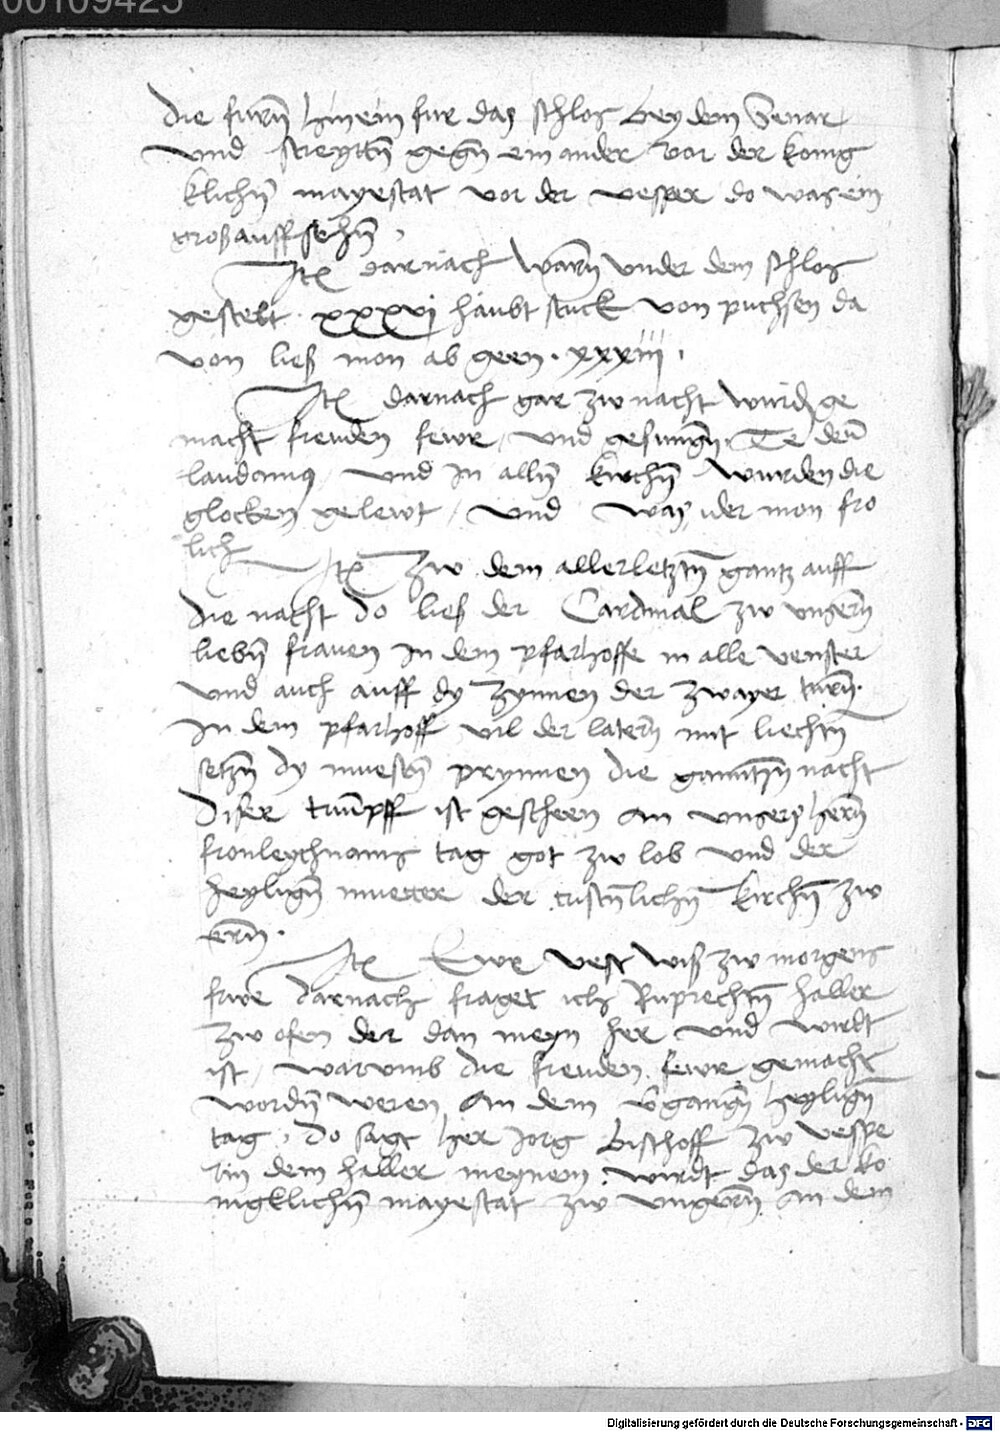 00109425
die furn hinein fur das schlos bey dem
und streyttn gegn ein ander vor der konig
klichn mayestat vor der vesper do was ein
groß auff sehn
Itē darnach warn under dem schlos
gestelt . xxxvj haubt stuck von puchsen da
von ließ mon ab geen . xxxiij .
Itē darnach gar zw nacht wurd ge
macht freuden fewr / und gesungn Te deū
laudamus / und in alln kirchn wurden die
glocken gelewt / und was ider mon fro
lich Itē zw dem allerletztn gantz auff
die nacht do ließ der Cardinal zw unsern
liebn frauen In dem pfarhoffe in alle venster
und auch auff dy zynnen der zwayer turn .
In dem pfarhoff vil der latern mit liechtn
setzn dy muestn prynnen die ganntzn nacht
Diser triumpff ist gescheen an unsers hern
fronleychnams tag got zw lob und der
heylign mutter der cristnlichn kirchn zw
ern .
Itē Ewr vest wiß zw morgens
frwe darnach fraget ich Ruprechtn haller
zw ofen der dan meyn her und wirdt
ist / warumb die freuden fewr gemacht
wordn weren An dem vergangn heylign
tag , do sagt her Jorg Bischoff zw vespe
rin dem haller meynem wirdt das der ko
nigklichn mayestat zw ungern An dem
Digitalisierung gefördert durch die Deutsche Forschungsgemeinschaft - DFG